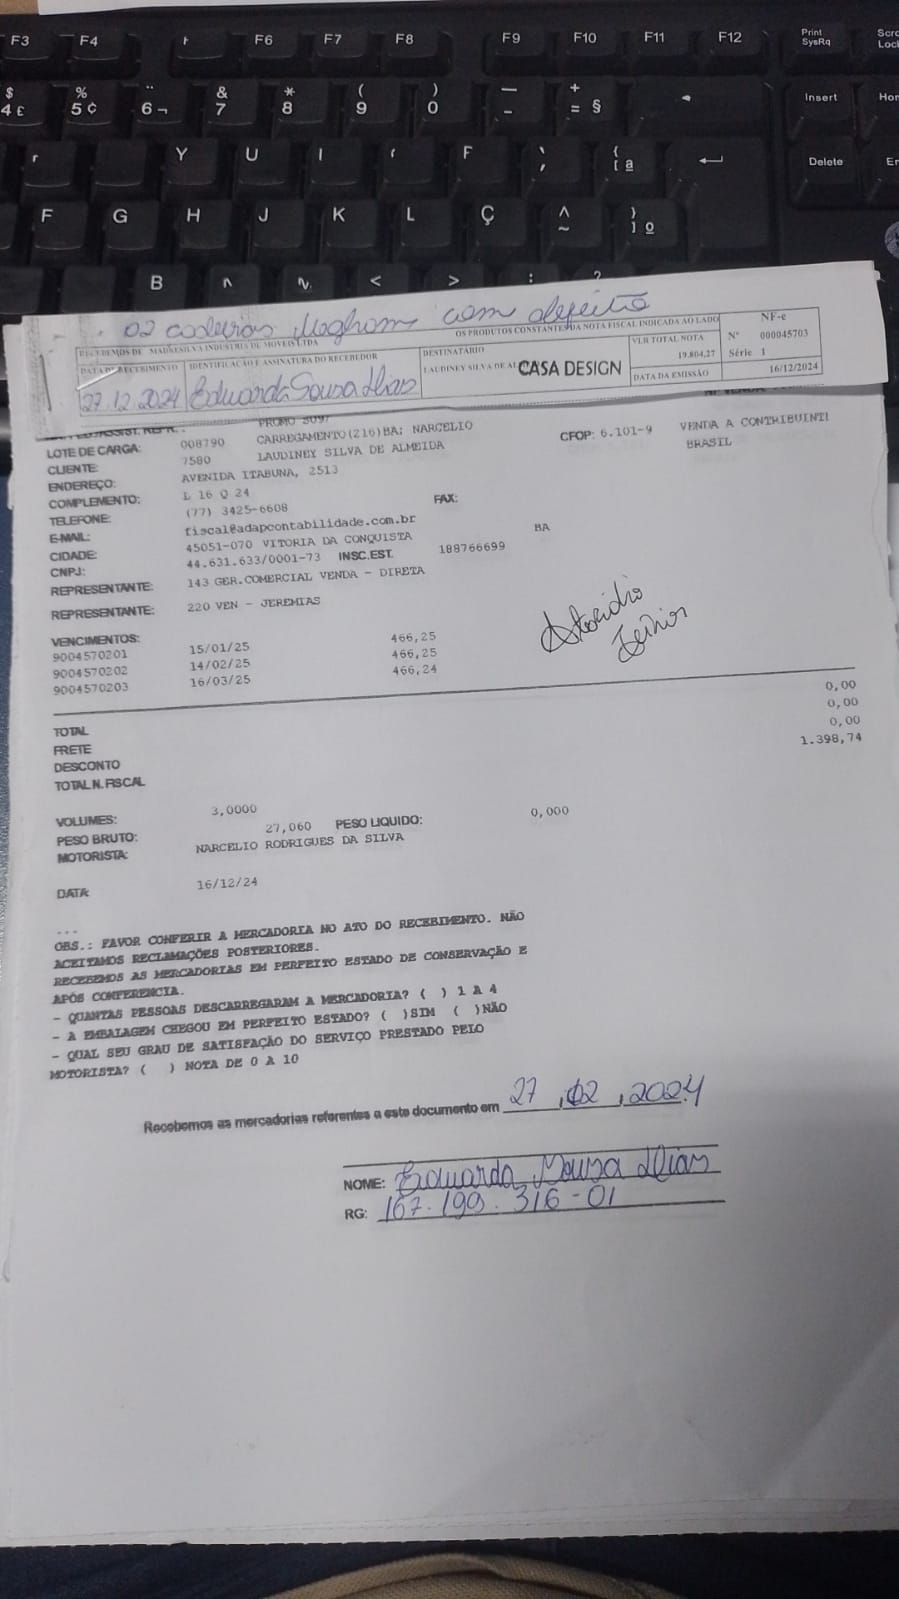 F3 F4 F6 F7 F8 F9 F10 F11 F12 Print SysRq Scro Lock
$ 4 £ % 5 ¢ ¨ 6 ¬ & 7 * 8 ( 9 ) 0 — - + = § Insert Hom
Y U I F ` ´ { [ ª Delete En
F G H J K L Ç ^ ~ } ] º
B < > : ?
02 com defeito
RECEBEMOS DE MADRESILVA INDUSTRIS DE MOVEIS LTDA OS PRODUTOS CONSTANTES DA NOTA FISCAL INDICADA AO LADO NF-e
DATA DE RECEBIMENTO IDENTIFICAÇÃO E ASSINATURA DO RECEBEDOR DESTINATÁRIO VLR TOTAL NOTA Nº 000045703
LAUDINEY SILVA DE AL CASA DESIGN 19.804,27 Série 1
27.12.2024 Eduarda Sousa Dias DATA DA EMISSÃO 16/12/2024
PROMO
LOTE DE CARGA: 008790 CARREGAMENTO(216)BA: NARCELIO CFOP: 6.101-9 VENDA A CONTRIBUINTI
CLIENTE: 7580 LAUDINEY SILVA DE ALMEIDA BRASIL
ENDEREÇO: AVENIDA ITABUNA, 2513
COMPLEMENTO: L 16 Q 24
TELEFONE: (77) 3425-6608 FAX:
E-MAIL: fiscal@adapcontabilidade.com.br
CIDADE: 45051-070 VITORIA DA CONQUISTA BA
CNPJ: 44.631.633/0001-73 INSC.EST. 188766699
REPRESENTANTE: 143 GER.COMERCIAL VENDA - DIRETA
REPRESENTANTE: 220 VEN - JEREMIAS
VENCIMENTOS:
9004570201 15/01/25 466,25
9004570202 14/02/25 466,25
9004570203 16/03/25 466,24
TOTAL 0,00
FRETE 0,00
DESCONTO 0,00
TOTAL N. FISCAL 1.398,74
VOLUMES: 3,0000
PESO BRUTO: 27,060 PESO LIQUIDO: 0,000
MOTORISTA: NARCELIO RODRIGUES DA SILVA
DATA: 16/12/24
...
OBS.: FAVOR CONFERIR A MERCADORIA NO ATO DO RECEBIMENTO. NÃO
ACEITAMOS RECLAMAÇÕES POSTERIORES.
RECEBEMOS AS MERCADORIAS EM PERFEITO ESTADO DE CONSERVAÇÃO E
APÓS CONFERENCIA.
- QUANTAS PESSOAS DESCARREGARAM A MERCADORIA? ( ) 1 A 4
- A EMBALAGEM CHEGOU EM PERFEITO ESTADO? ( )SIM ( )NÃO
- QUAL SEU GRAU DE SATISFAÇÃO DO SERVIÇO PRESTADO PELO
MOTORISTA? ( ) NOTA DE 0 A 10
Recebemos as mercadorias referentes a este documento em 27 , 12 , 2024
NOME: Eduarda Sousa Dias
RG: 167.199.316-01